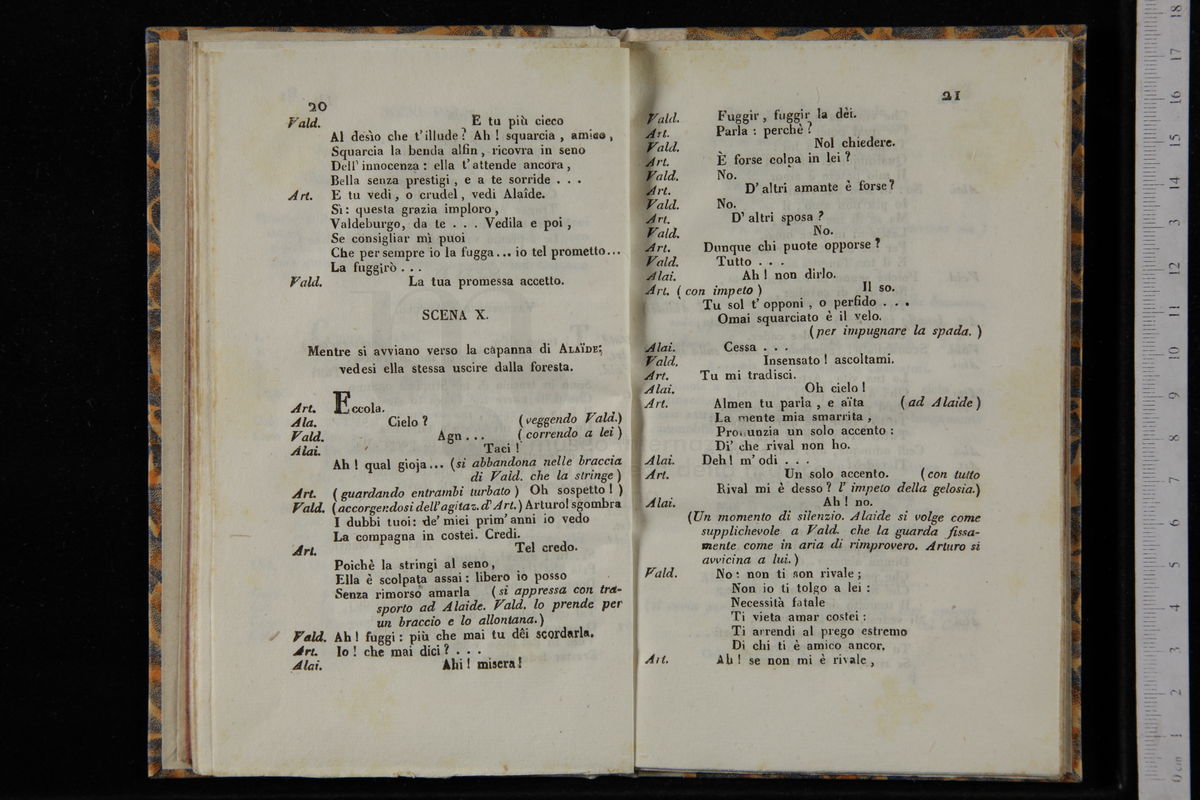 20
Vald. E tu più cieco
Al desìo che t'illude? Ah! squarcia, amico,
Squarcia la benda alfin, ricovra in seno
Dell' innocenza: ella t'attende ancora,
Bella senza prestigi, e a te sorride . . .
Art. E tu vedi, o crudel, vedi Alaîde.
Sì: questa grazia imploro,
Valdeburgo, da te . . . Vedila e poi,
Se consigliar mì puoi
Che per sempre io la fugga... io tel prometto...
La fuggirò . . .
Vald. La tua promessa accetto.
SCENA X.
Mentre si avviano verso la capanna di ALAÏDE;
vedesi ella stessa uscire dalla foresta.
Art. Eccola.
Ala. Cielo? (veggendo Vald.)
Vald. Agn... (correndo a lei)
Alai. Taci!
Ah! qual gioja... (si abbandona nelle braccia
di Vald. che la stringe)
Art. (guardando entrambi turbato) Oh sospetto!)
Vald. (accorgendosi dell'agitaz. d'Art.) Arturo! sgombra
I dubbi tuoi: de' miei prim' anni io vedo
La compagna in costei. Credi.
Art. Tel credo.
Poichè la stringi al seno,
Ella è scolpata assai: libero io posso
Senza rimorso amarla (si appressa con tra-
sporto ad Alaide. Vald. lo prende per
un braccio e lo allontana.)
Vald. Ah! fuggi: più che mai tu dêi scordarla.
Art. Io! che mai dici? . . .
Alai. Ahi! misera!
21
Vald. Fuggir, fuggir la dèi.
Art. Parla: perchè?
Vald. Nol chiedere.
Art. È forse colpa in lei?
Vald. No.
Art. D' altri amante è forse?
Vald. No.
Art. D' altri sposa?
Vald. No.
Art. Dunque chi puote opporse?
Vald. Tutto . . .
Alai. Ah! non dirlo.
Art. (con impeto) Il so.
Tu sol t' opponi, o perfido . . .
Omai squarciato è il velo.
(per impugnare la spada.)
Alai. Cessa . . .
Vald. Insensato! ascoltami.
Art. Tu mi tradisci.
Alai. Oh cielo!
Art. Almen tu parla, e aïta (ad Alaide)
La mente mia smarrita,
Pronunzia un solo accento:
Di' che rival non ho.
Alai. Deh! m' odi . . .
Art. Un solo accento. (con tutto
Rival mi è desso? l' impeto della gelosia.)
Alai. Ah! no.
(Un momento di silenzio. Alaide si volge come
supplichevole a Vald. che la guarda fissa-
mente come in aria di rimprovero. Arturo si
avvicina a lui.)
Vald. No: non ti son rivale;
Non io ti tolgo a lei:
Necessità fatale
Ti vieta amar costei:
Ti arrendi al prego estremo
Di chi ti è amico ancor.
Art. Ah! se non mi è rivale,
0 cm 1 2 3 4 5 6 7 8 9 10 11 12 13 14 15 16 17 18